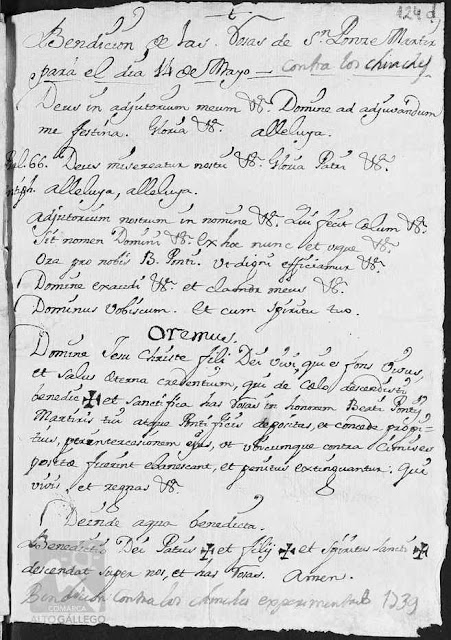 124
Bendicion de las Rosas de Sn. Ponze Martir
para el dia 14 de Mayo contra los chinches
Deus in adjutorium meum &c. Domine ad adjuvandum
me festina. Gloria &c. alleluya.
Psal. 66. Deus misereatur nostri &c. Gloria Patri &c.
Antiph. alleluya, alleluya.
Adjutorium nostrum in nomine &c. Qui fecit cælum &c.
Sit nomen Domini &c. Ex hoc nunc et usque &c.
Ora pro nobis B. Ponti. Ut digni efficiamur &c.
Domine exaudi &c. et clamor meus &c.
Dominus vobiscum. Et cum spiritu tuo.
Oremus.
Domine Jesu Christe fili Dei vivi, qui es fons vivus,
et salus æterna credentium, qui de Cælo descendisti
benedic ✠ et sanctifica has Rosas in honorem Beati Pontij
Martiris tui atque Pontificis depositas, et concede propi-
tius, per intercessionem ejus, ut ubicumque contra Cimises
positæ fuerint evanescant, et penitus extinguantur. Qui
vivis, et regnas &c.
Deinde aqua benedicta.
Benedictio Dei Patris ✠ et filij ✠ et spiritus sancti ✠
descendat super nos, et has Rosas. Amen.
Bendicion contra los experimentada 1739
COMARCA
ALTO GALLEGO